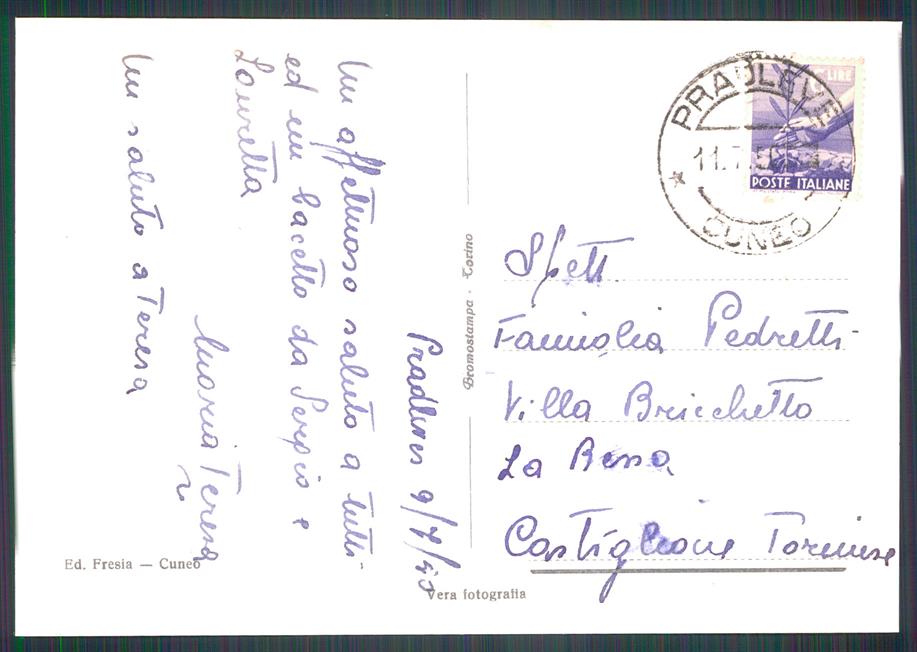 Pradleves 9/7/53
Un affettuoso saluto a tutti
ed un bacetto da Sergio e
Lauretta
Maria Teresa
Un saluto a Teresa
Ed. Fresia — Cuneo
Vera fotografia
Bromostampa - Torino
PRADLEVE
11.7.5
CUNEO
LIRE
POSTE ITALIANE
Spett.
Famiglia Pedretti
Villa Bricchetto
La Bessa
Castiglione Torinese